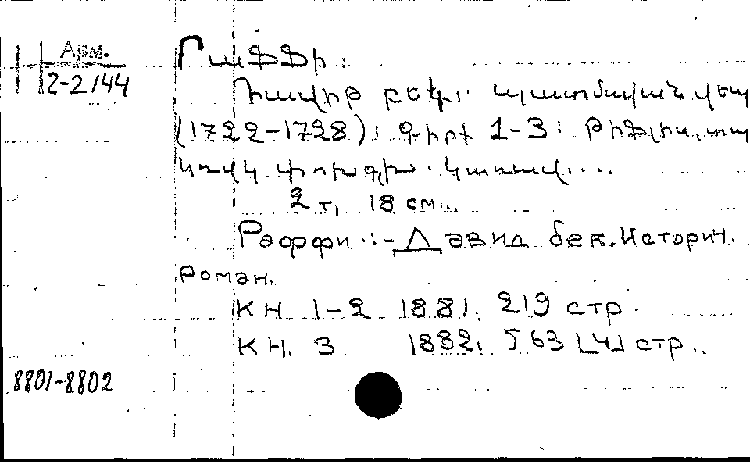 Арм.
2-2/44
Րաֆֆի:
Դավիթ բեկ: պատմական վեպ
(1722-1728): գիրք 1-3: Թիֆլիս, տպ
կովկ. փոխարք. կառավ....
2 т, 18 см.
Раффи.:- Давид бек. Историч.
роман.
КН 1-2 1881. 219 стр.
КН. 3 1882. 563 [4] стр..
8801-8802